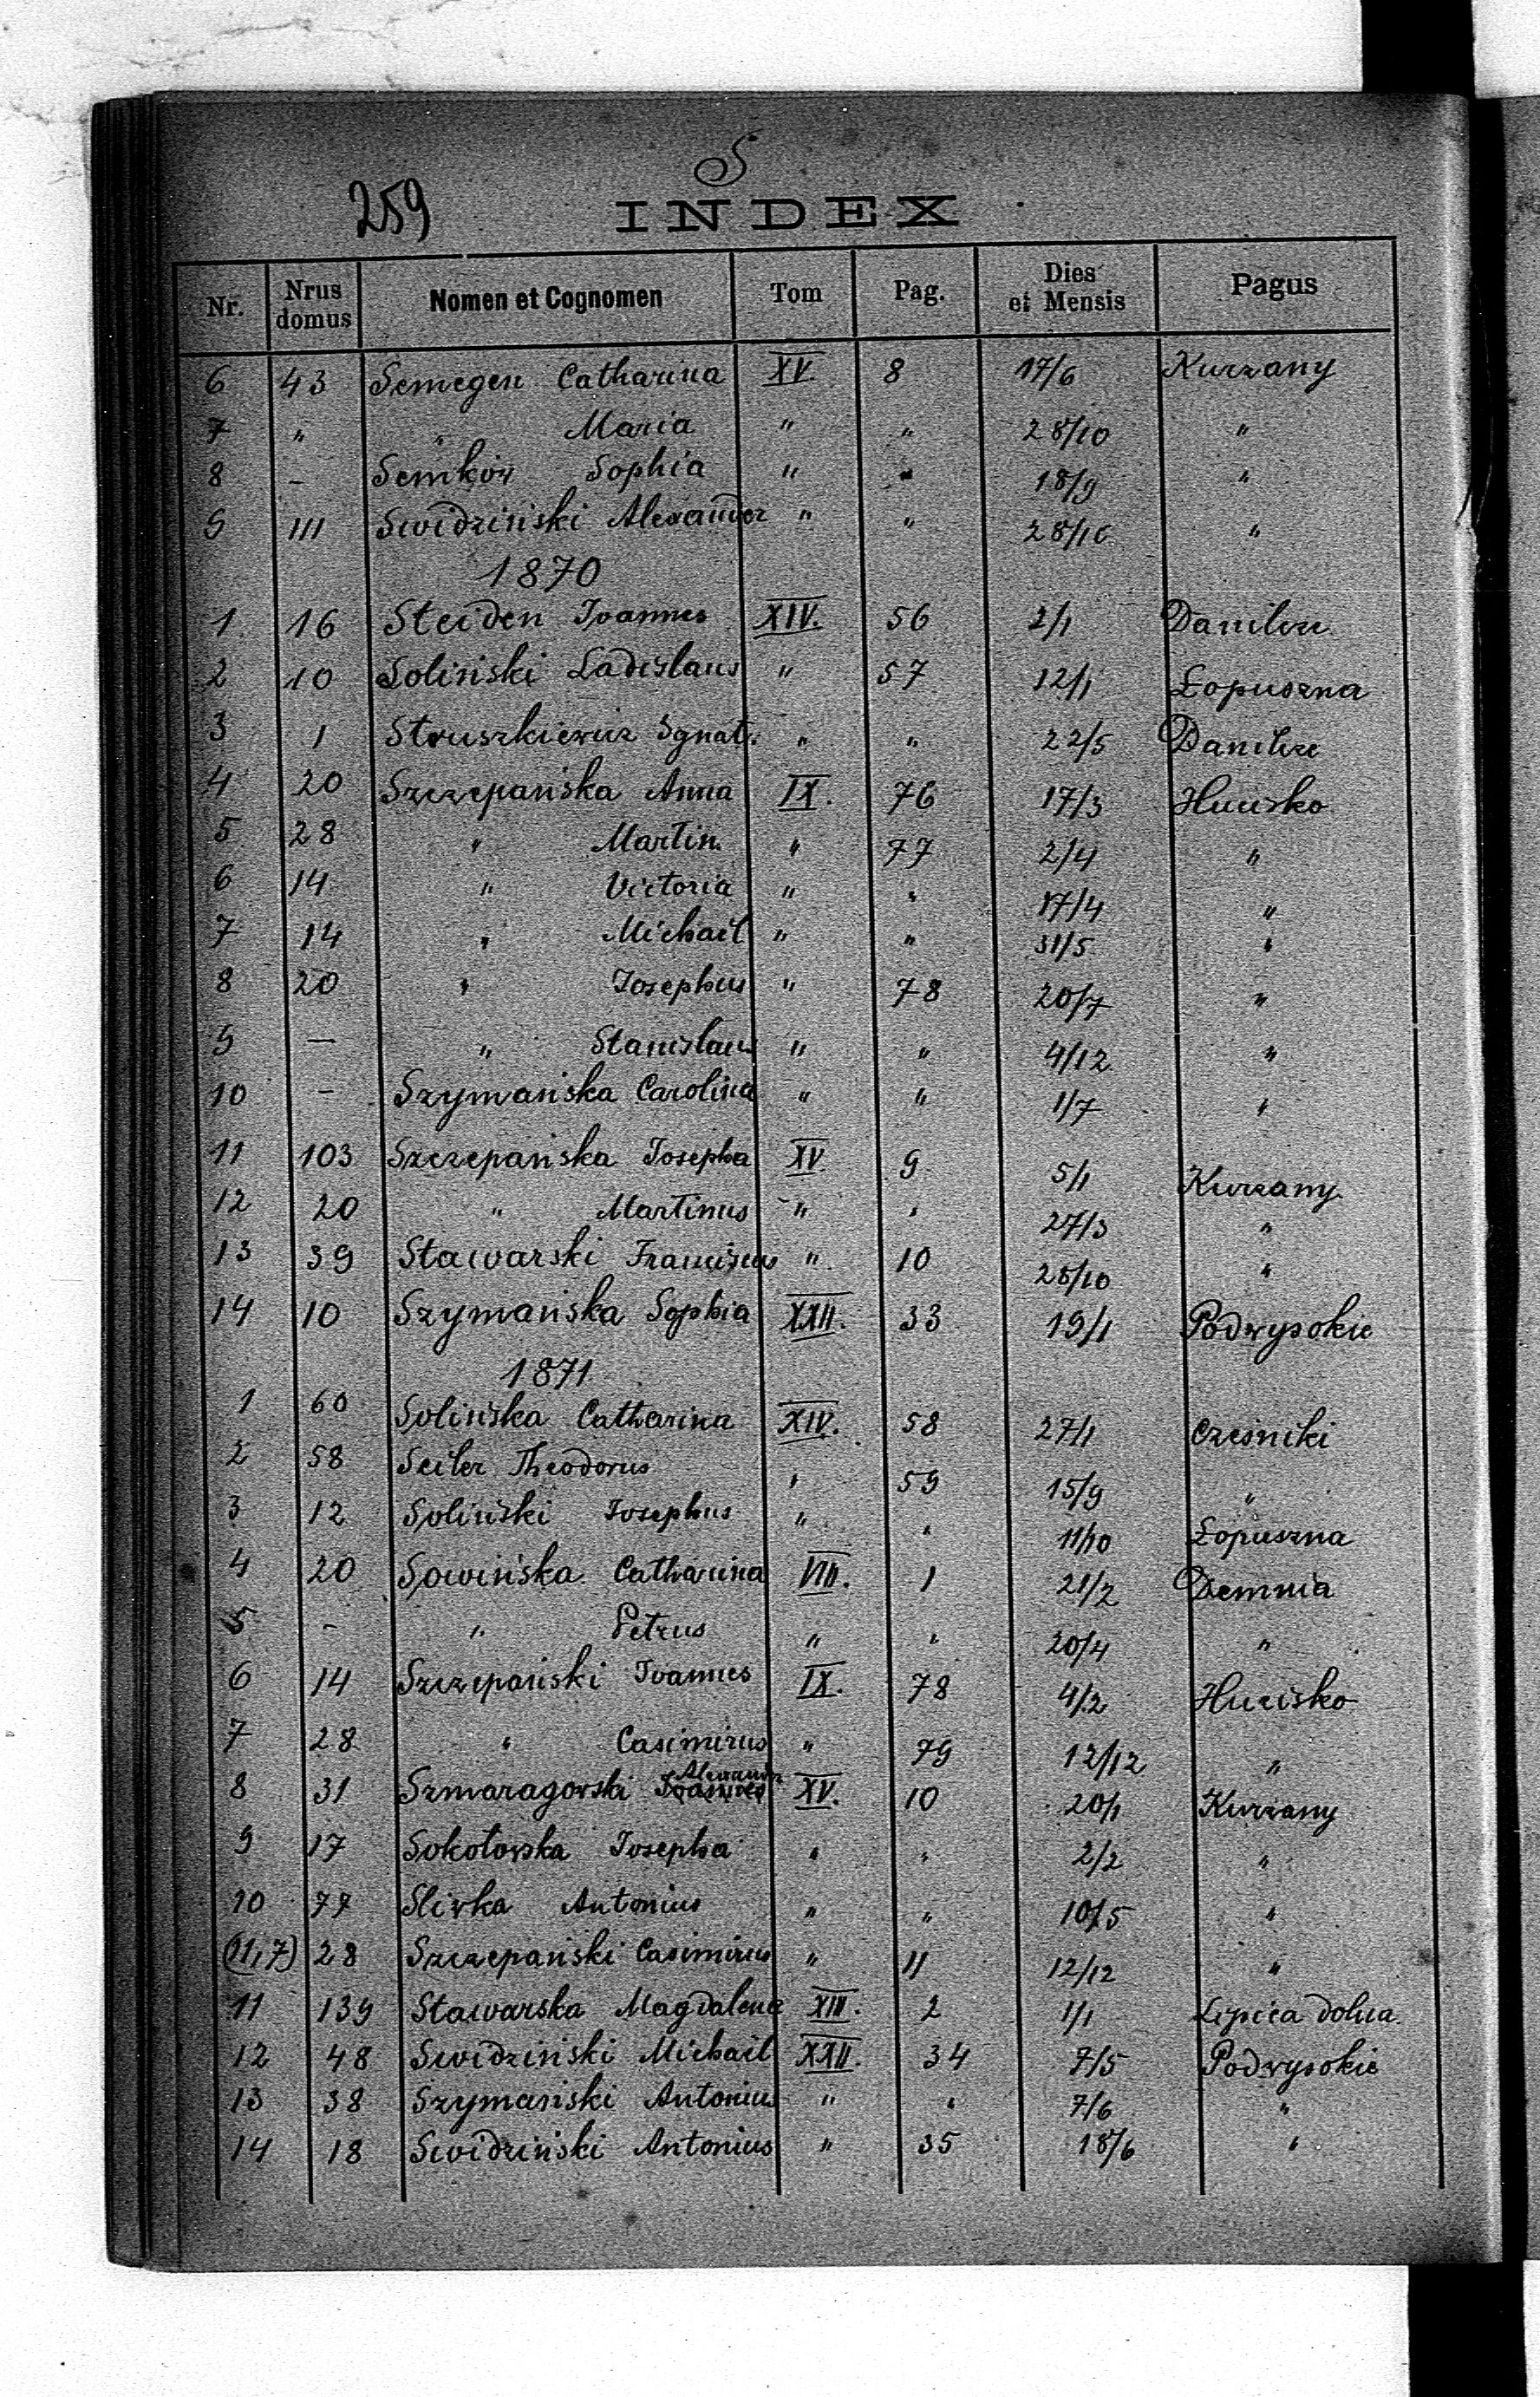 S
259
INDEX
Nr. Nrus domus Nomen et Cognomen Tom Pag. Dies et Mensis Pagus
6 43 Semegen Catharina XV. 8 17/6 Kurzany
7 " " Maria " " 28/10 "
8 - Semków Sophia " " 18/9 "
9 111 Swidziński Alexander " " 28/10 "
1870
1 16 Steiden Joannes XIV. 56 2/1 Danilcze
2 10 Soliński Ladislaus " 57 12/1 Łopuszna
3 1 Struszkiewicz Ignat. " " 22/5 Danilcze
4 20 Szczepańska Anna IX. 76 17/3 Hucisko
5 28 " Martin. " 77 2/4 "
6 14 " Victoria " " 17/4 "
7 14 " Michail " " 31/5 "
8 20 " Josephus " 78 20/7 "
9 — " Stanislaus " " 4/12 "
10 - Szymańska Carolina " " 1/7 "
11 103 Szczepańska Josepha XV 9 5/1 Kurzany
12 20 " Martinus " " 27/3 "
13 39 Stawarski Franciscus " 10 28/10 "
14 10 Szymańska Sophia XXII. 33 19/1 Podwysokie
1871
1 60 Solińska Catharina XIV. 58 27/1 Cześniki
2 58 Seiler Theodorus " 59 15/9 "
3 12 Soliński Josephus " " 11/10 Łopuszna
4 20 Sowińska Catharina VIII. 1 21/2 Demnia
5 - " Petrus " " 20/4 "
6 14 Szczepański Joannes IX. 78 4/2 Hucisko
7 28 " Casimirus " 79 12/12 "
8 31 Szmaragowski Joannes Alexander XV. 10 20/1 Kurzany
9 17 Sokołowska Josepha " " 2/2 "
10 77 Slivka Antonius " " 10/5 "
(11,7) 28 Szczepański Casimirus " 11 12/12 "
11 139 Stawarska Magdalena XIII. 2 1/1 Lipica dolna
12 48 Swidziński Michail XXII. 34 7/5 Podwysokie
13 38 Szymański Antonius " " 7/6 "
14 18 Swidziński Antonius " 35 18/6 "